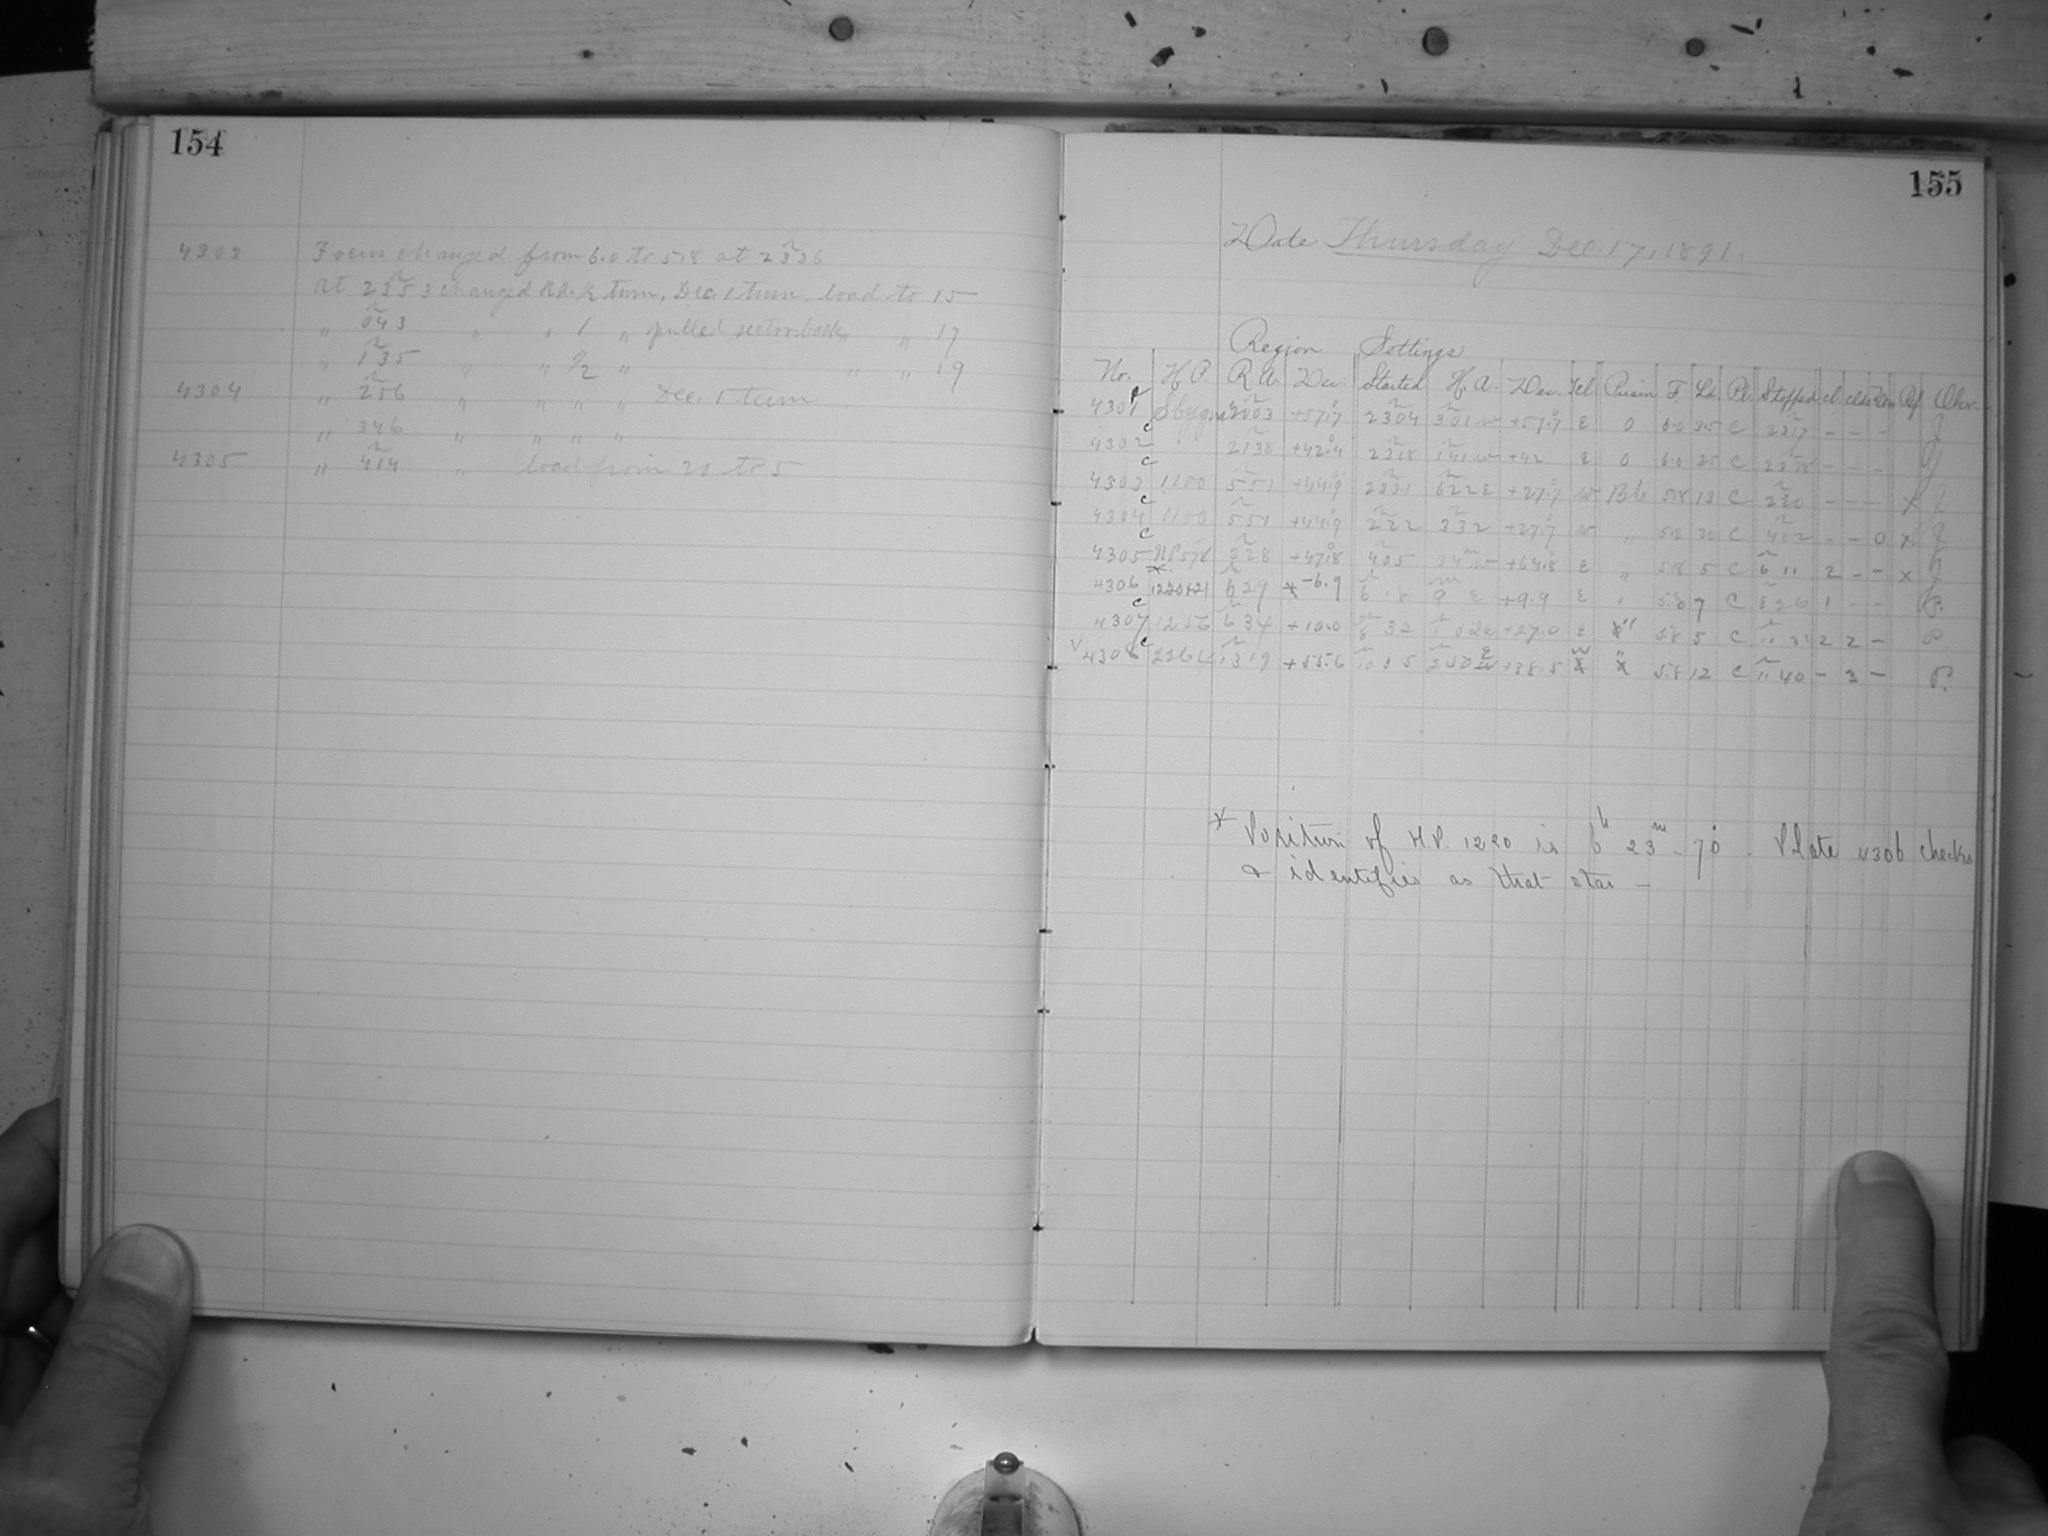 154
4303 Focus changed from 6.0 to 5.8 at 23 36
at 23 53 changed R.A. ½ turn, Dec. 1 turn, load to 15
" 0 43 " " 1 " pulled sector back " " 17
" 1 35 " " ½ " " " 19
4304 " 2 56 " " " " Dec. 1 turn
" 3 46 " " " "
4305 " 4 14 " load from 20 to 5
155
Date Thursday Dec. 17, 1891.
Region Settings
No. H.P. R.A. Dec. Started H.A. Dec. Tel Prism F. Ld. Pl. Stopped cl. Ref Obsr.
4301 c 20 03 +57.7 23 04 3 01 w +57.7 E 0 6.0 35 C 23 17 - - -
4302 c 21 38 +42.4 23 18 1 41 w +42 E 0 6.0 35 C 23 28 - - -
4303 c 1100 5 51 +44.9 23 31 6 22 E +27.7 w 5.8 13 C 2 20 - - - x
4304 c 1100 5 51 +44.9 2 22 3 32 +27.7 w " 5.8 20 C 4 02 - - 0 x
4305 c 578 3 28 +47.8 4 05 34 m w +64.8 E " 5.8 5 C 6 11 2 - - x
4306 * 6 29 * -6.9 6 18 9 m E +9.9 E " 5.8 7 C 8 26 1 - - P.
4307 c 1256 6 34 +10.0 +27.0 E " 5.8 5 C 2 2 - P.
v 4308 c 2264 13 19 +55.6 10 35 +38.5 w " 5.8 12 C 11 40 - 3 - P.
* Position of H.P. 1220 is 6h 23m - 7°0 - Plate 4306 checks
& identifies as that star -